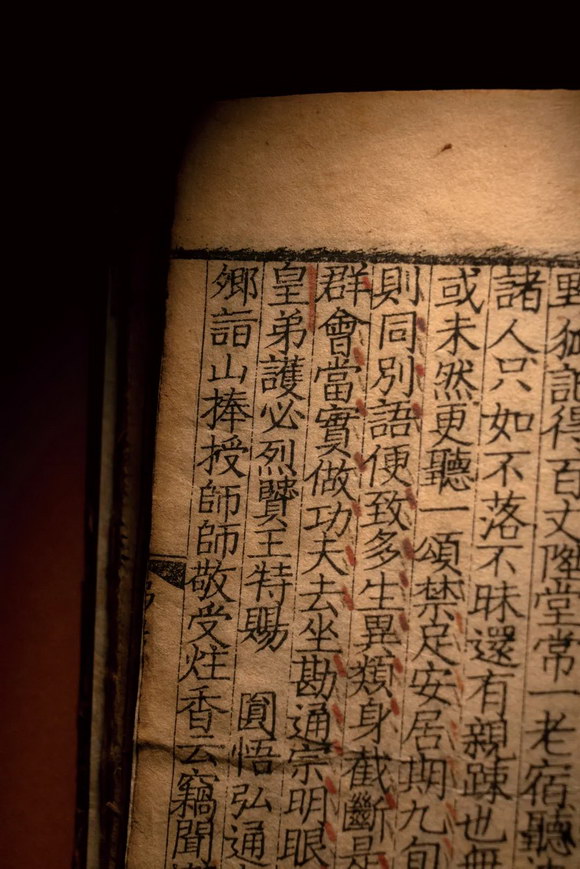 野狐記得百丈陞堂常一老宿聽
諸人只如不落不昧還有親踈也無
或未然更聽一頌禁足安居期九旬
則同別語便致多生異類身截斷是
群會當實做功夫去坐勘通宗明眼
皇弟護必烈贒王特賜　圓悟弘通
鄉詣山捧授師師敬受炷香云竊聞